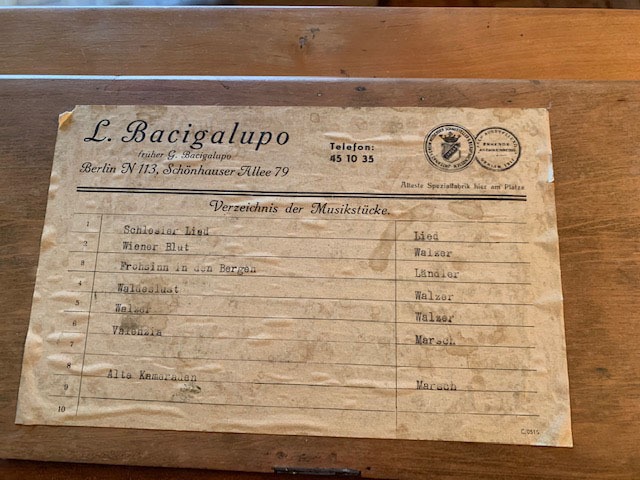 L. Bacigalupo
früher G. Bacigalupo
Berlin N 113, Schönhauser Allee 79
Telefon:
45 10 35
Älteste Spezialfabrik hier am Platze
Verzeichnis der Musikstücke.
1 Schlesier Lied Lied
2 Wiener Blut Walzer
3 Frohsinn in den Bergen Ländler
4 Waldeslust Walzer
5 Walzer Walzer
6 Valenzia Marsch
7
8 Alte Kameraden Marsch
9
10